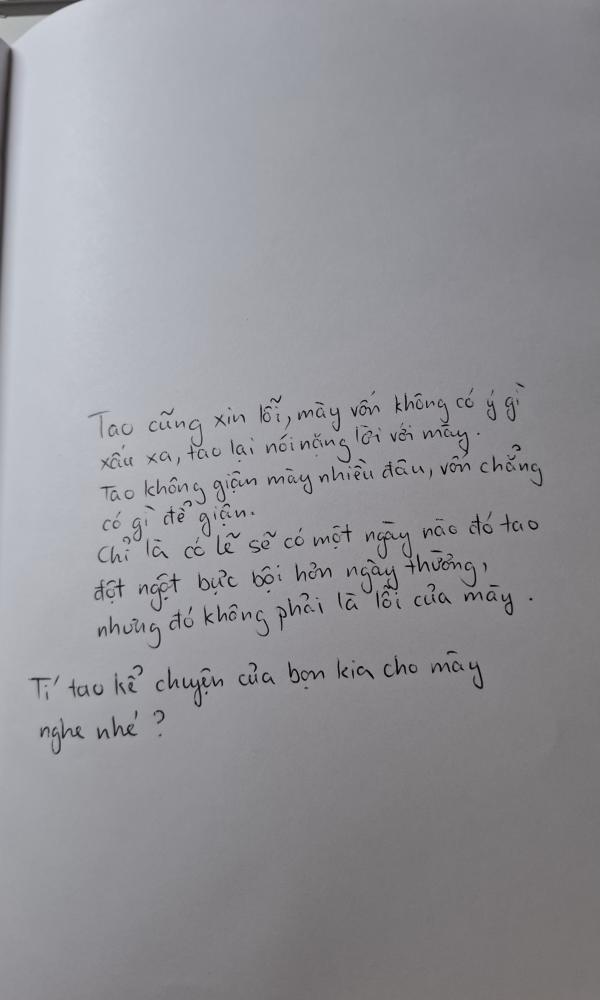 Tao cũng xin lỗi, mày vốn không có ý gì
xấu xa, tao lại nói nặng lời với mày.
Tao không giận mày nhiều đâu, vốn chẳng
có gì để giận.
Chỉ là có lẽ sẽ có một ngày nào đó tao
đột ngột bực bội hơn ngày thường,
nhưng đó không phải là lỗi của mày.
Tí tao kể chuyện của bọn kia cho mày
nghe nhé?